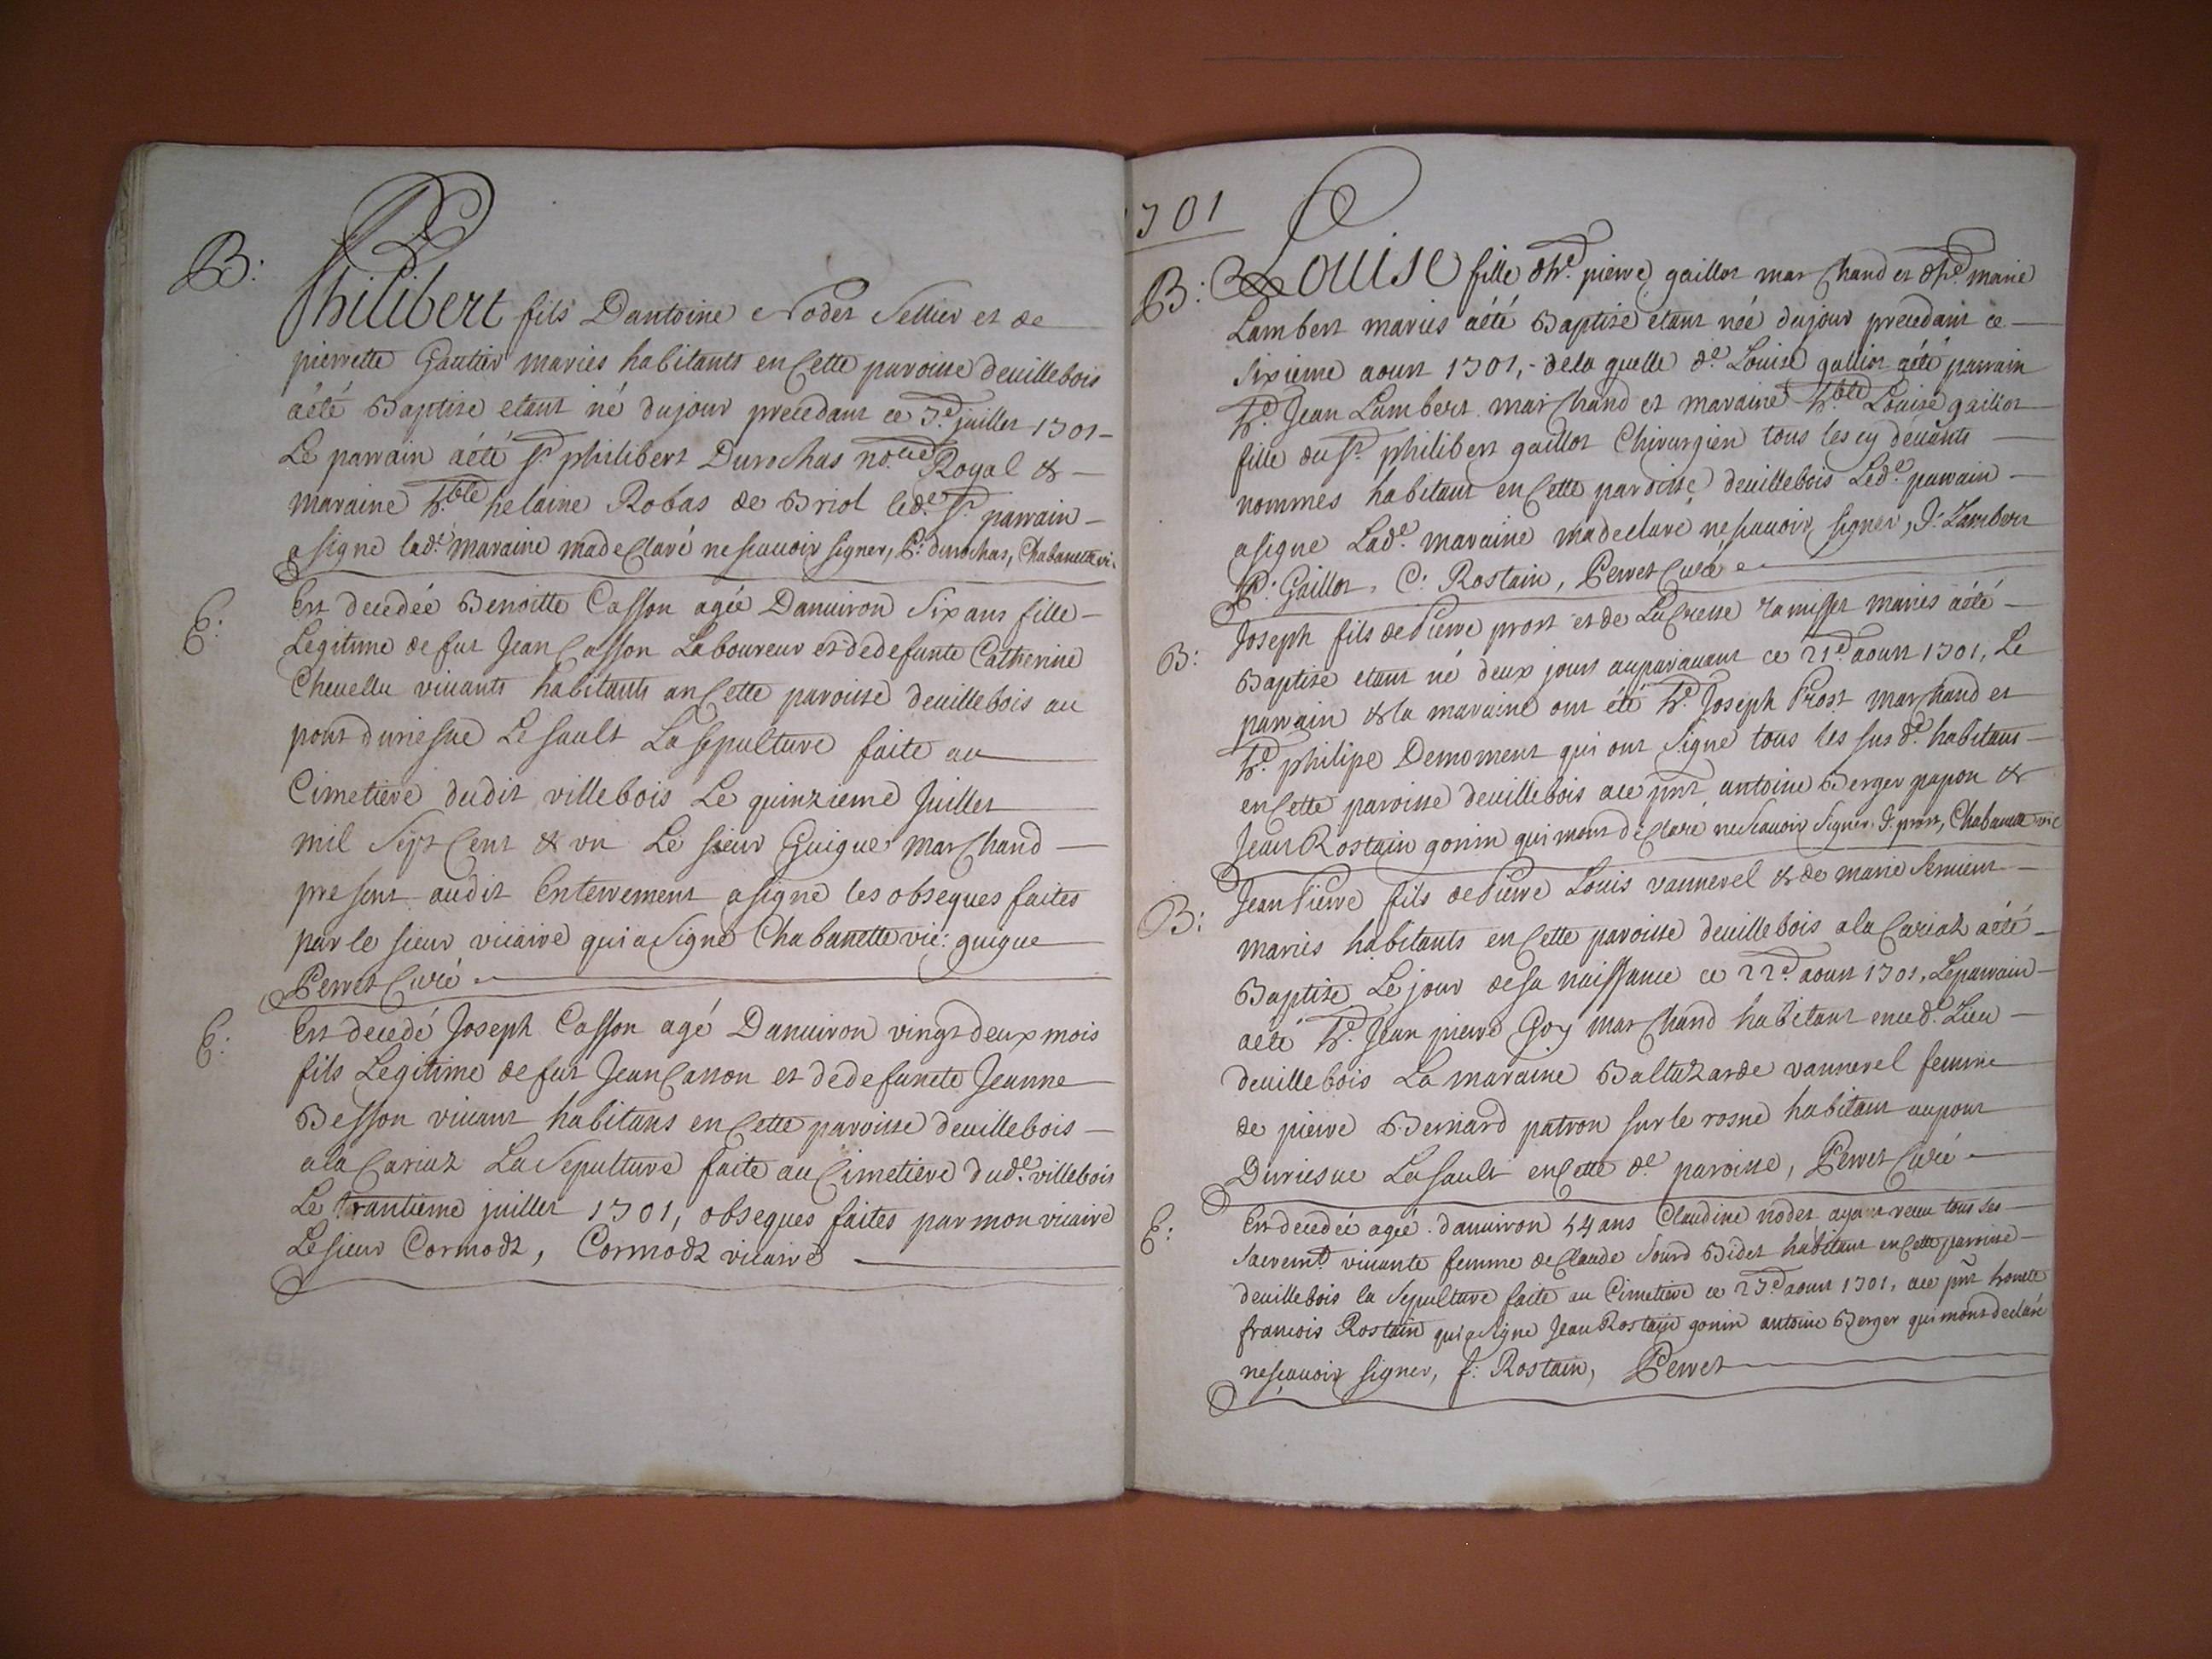 B:
Philibert fils Dantoine Nodet Sellier et de
pierrette Gautier mariés habitants en Cette paroisse deuillebois
aété Baptise etant né dujour precedant ce 7e juillet 1701
Le parrain aété sr philibert Durochas no.re Royal &
maraine h.ble helaine Robas de Briol led.e sr parrain
a signe lad.e maraine ma deClaré ne scauoir signer, P: durochas, Chabanette vi.
E:
Est decedée Benoitte Casson agée Danuiron Six ans fille
Legitime de fut Jean Casson Laboureur et de defunte Catherine
Cheuellu viuants habitants an Cette paroisse deuillebois au
pont Le Sault La sepulture faite au
Cimetiere dudit villebois Le quinzieme Juillet
mil Sept Cent & vn Le sieur Guigue marChand
present audit Enterrement a signe les obseques faites
par le sieur vicaire qui a Signe Chabanette vic: guigue
Perret Curé
E:
Est decedé Joseph Casson agé Danuiron vingt deux mois
fils Legitime de fut Jean Casson et de defuncte Jeanne
Besson viuant habitans en Cette paroisse deuillebois
a la Cariaz La Sepulture faite au Cimetiere dud.e villebois
Le trantieme juillet 1701, obseques faites par mon vicaire
Le sieur Cormodz, Cormodz vicaire
1701
B:
Louise fille dhe. pierre gaillot marChand et dhe. marie
Lambert mariés aété Baptisé etant née dujour precedant ce
Sixieme aoust 1701, de la quelle d.e Louise galliot aété parrain
he. Jean Lambert marChand et maraine h.ble Louise gaillot
fille du sr. philibert gaillot Chirurgien tous les cy deuants
nommes habitant en Cette paroisse deuillebois Led.e parrain
a signe Lad.e maraine ma declaré ne scauoir signer, J: Lambert
P: Gaillot, C: Rostain, Perret Curé
B:
Joseph fils de Pierre prost et de LuCresse ramisset mariés aété
Baptisé etant né deux jours auparauant ce 21e aoust 1701, Le
parrain & la maraine ont été he. Joseph Prost marChand et
he. philipe Demoment qui ont Signé tous les susd.e habitans
en Cette paroisse deuillebois ace pnt antoine Berger papon &
Jean Rostain gonin qui mont deClaré ne scauoir Signer J. prost, Chabanette vic
B:
Jean Pierre fils de Pierre Louis vannerel & de marie Semient
mariés habitants en Cette paroisse deuillebois a la Cariaz aété
Baptisé Le jour de sa naissance ce 22e aoust 1701, Le parrain
aété he. Jean pierre Goy marChand habitant enced.e Lieu
deuillebois La maraine Baltazarde vannerel femme
de pierre Bernard patron sur le rosne habitant au pont
Le Sault en Cette d.e paroisse, Perret Curé
E:
Est decedée agée danuiron 54 ans Claudine nodet ayant receu tous ses
Sacremt. viuante femme de Claude Sourd Bidet habitant en Cette paroisse
deuillebois la Sepulture faite au Cimetiere ce 23e aoust 1701, ace pnt honeste
francois Rostain qui a Signe Jean Rostain gonin antoine Berger qui mont declaré
ne scauoir signer, f: Rostain, Perret